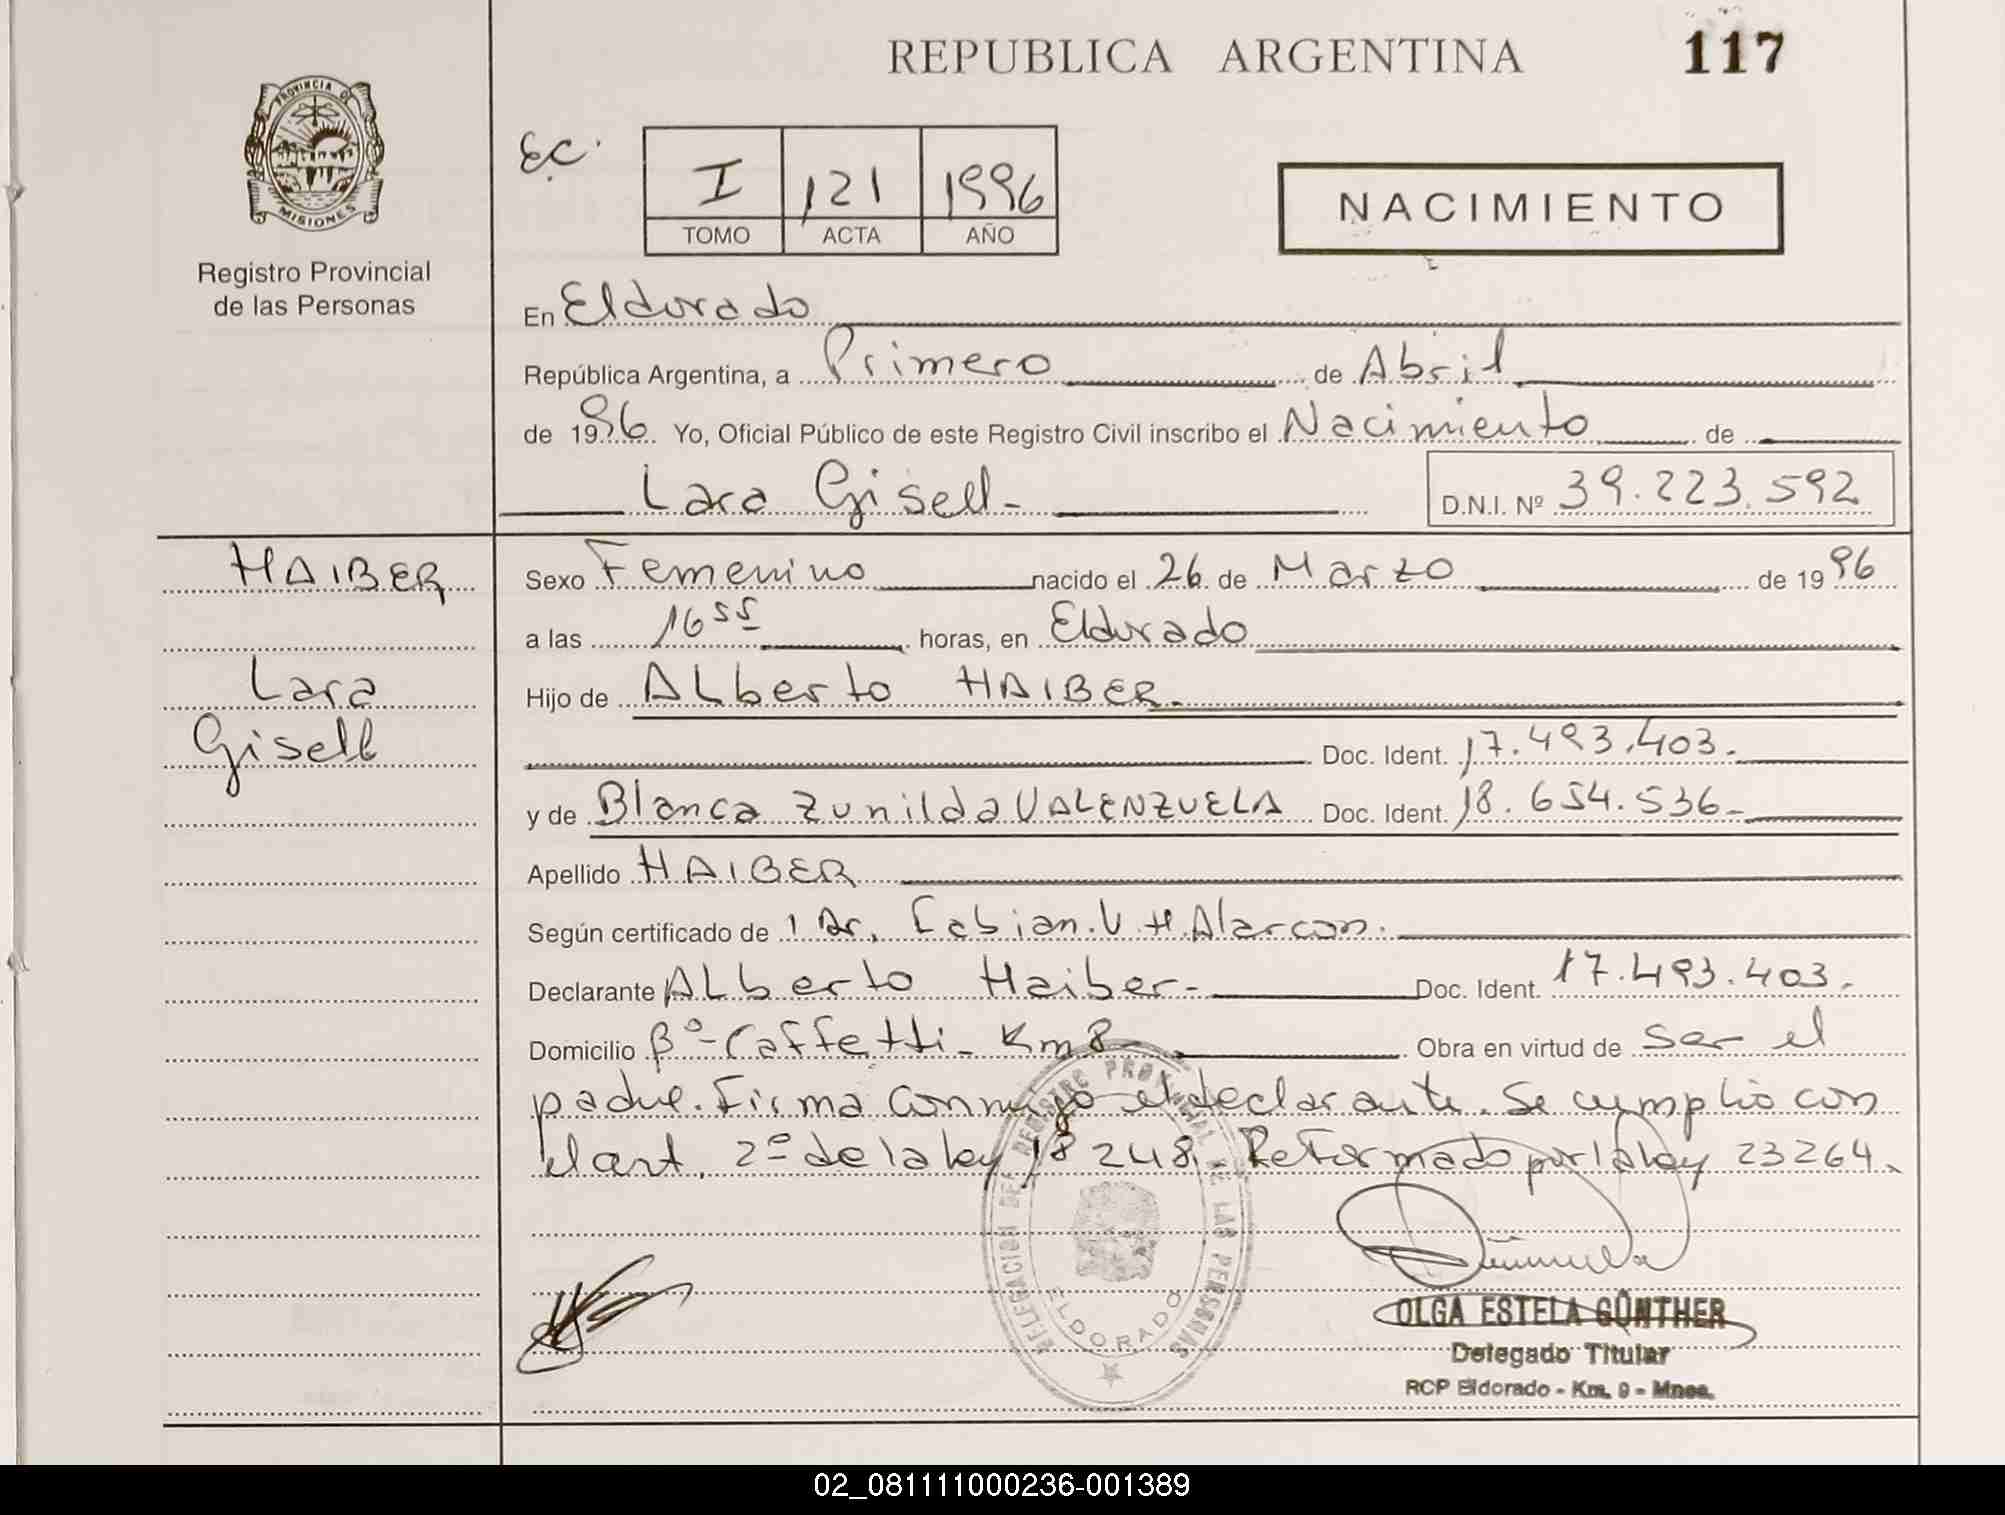 REPUBLICA ARGENTINA 117
PROVINCIA DE
MISIONES
Registro Provincial
de las Personas
E.C. I 121 1996
TOMO ACTA AÑO
NACIMIENTO
En Eldorado
República Argentina, a Primero de Abril
de 1996 Yo, Oficial Público de este Registro Civil inscribo el Nacimiento de
Lara Gisell- D.N.I. Nº 39.223.592
HAIBER
Lara
Gisell
Sexo Femenino nacido el 26 de Marzo de 1996
a las 16 55 horas, en Eldorado
Hijo de ALberto HAIBER-
Doc. Ident. 17.493.403.-
y de Blanca Zunilda VALENZUELA Doc. Ident. 18.654.536-
Apellido HAIBER
Según certificado de 1 Dr. Fabian. V. H. Alarcon.
Declarante ALberto Haiber- Doc. Ident. 17.493.403.-
Domicilio Bº-Caffetti- Km 8 Obra en virtud de ser el
padre. Firma conmigo el declarante. Se cumplio con
el art. 2º de la ley 18248.- Reformado por la ley 23264.
DELEGACION DEL REGISTRO PROVINCIAL DE LAS PERSONAS
ELDORADO
OLGA ESTELA GÜNTHER
Delegado Titular
RCP Eldorado - Km. 9 - Mnes.
02_081111000236-001389